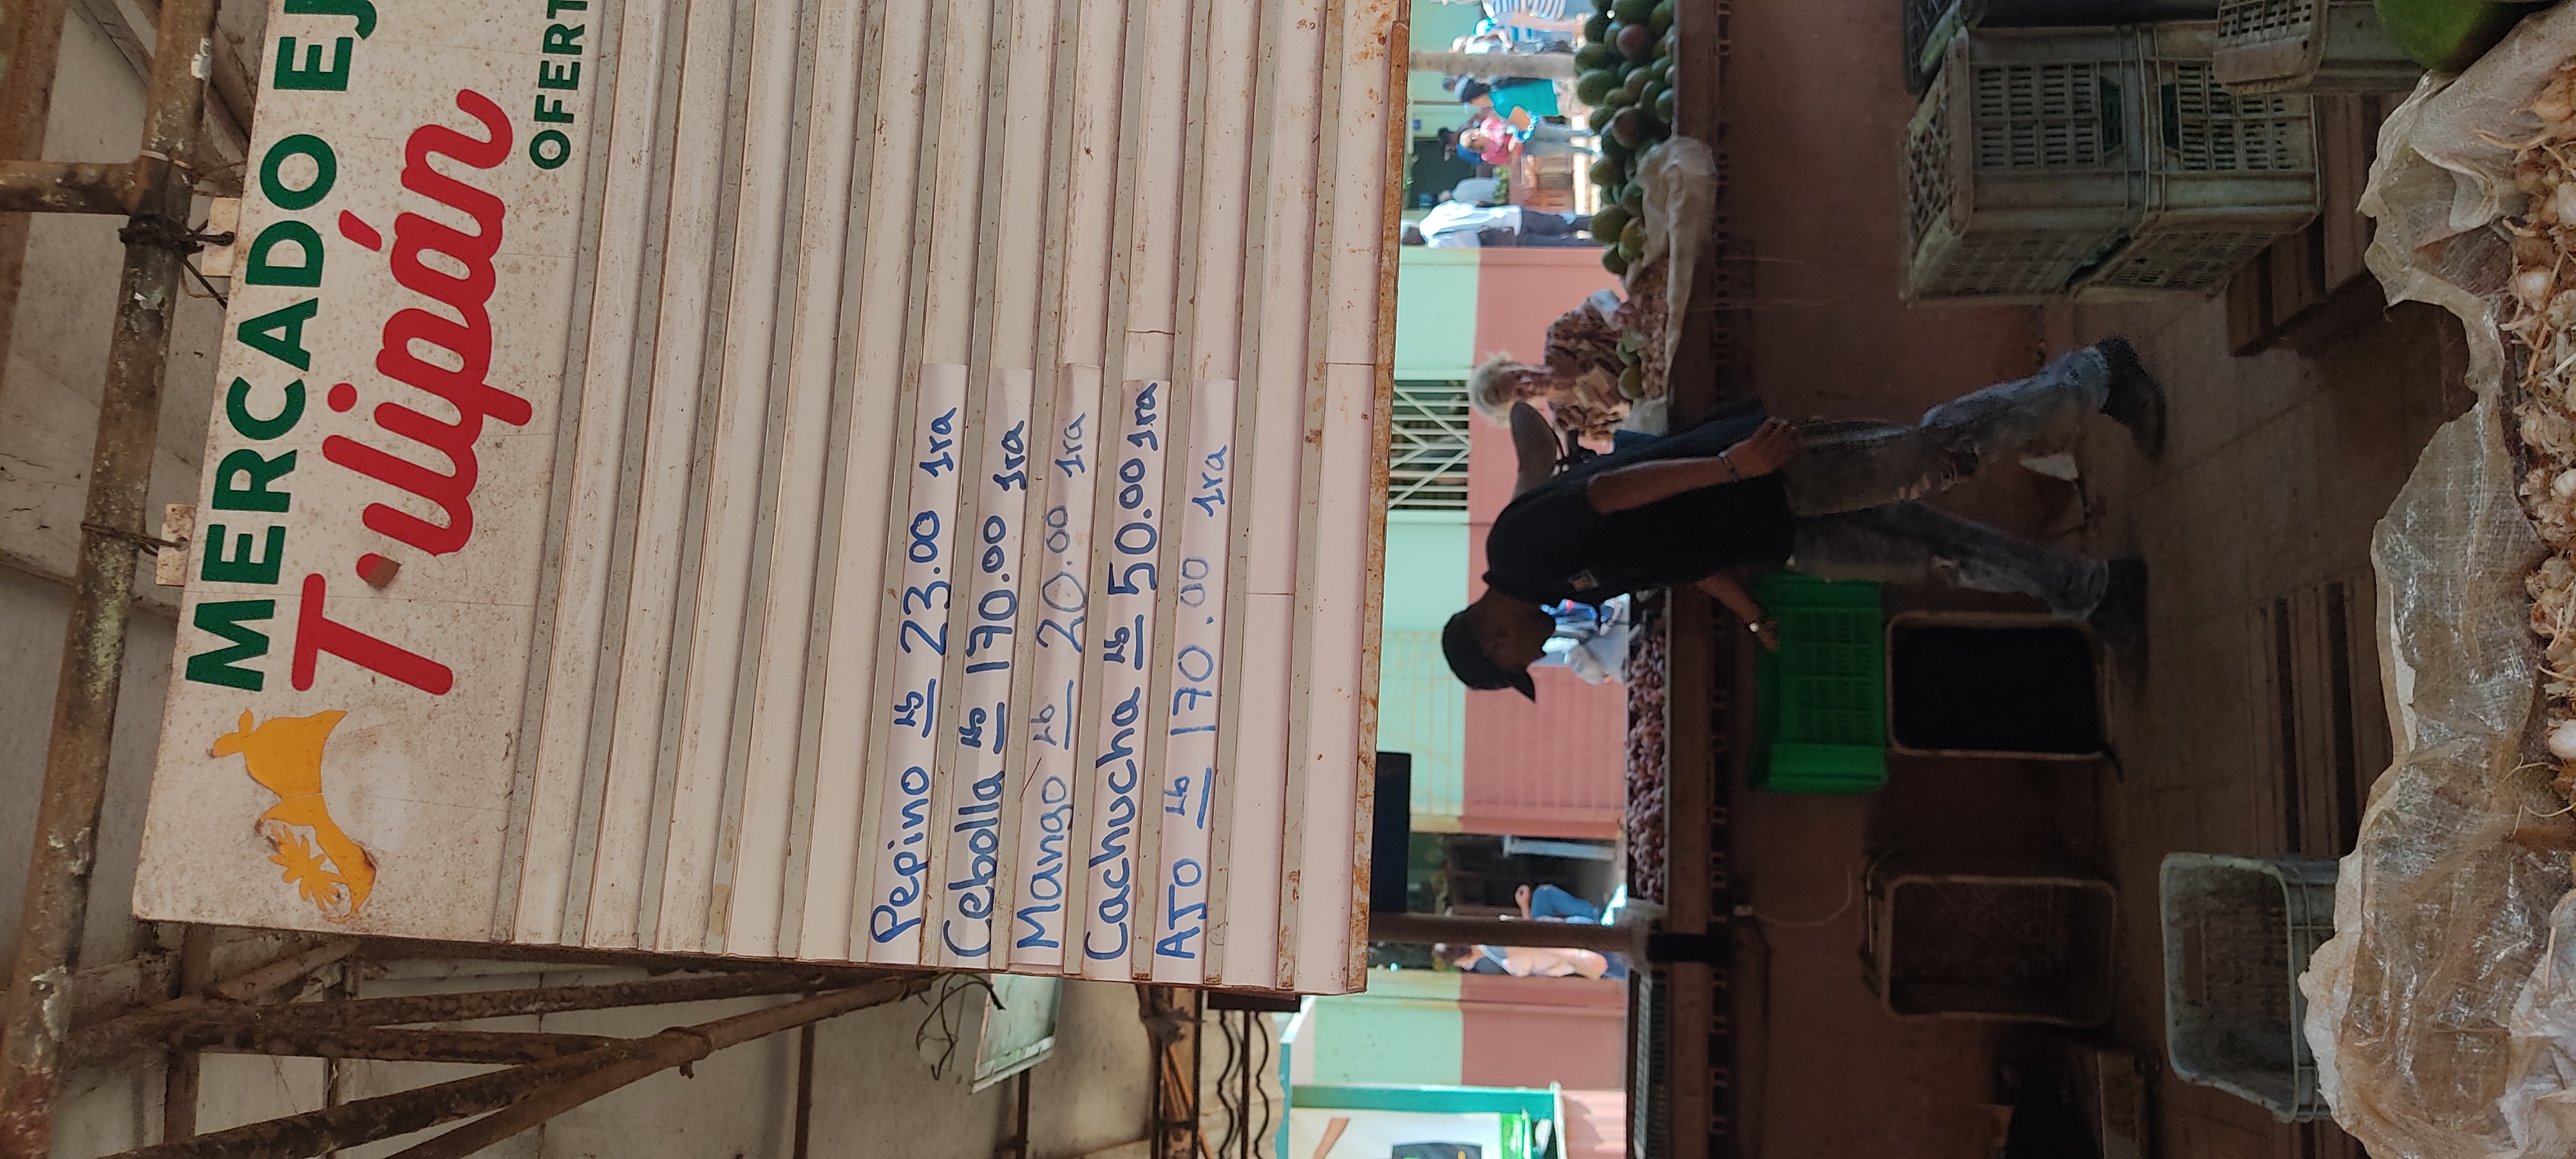 MERCADO EJ
Tulipán
OFERT
Pepino Lb 23.00 1ra
Cebolla Lb 170.00 1ra
Mango Lb 20.00 1ra
Cachucha Lb 50.00 1ra
AJO Lb 170.00 1ra